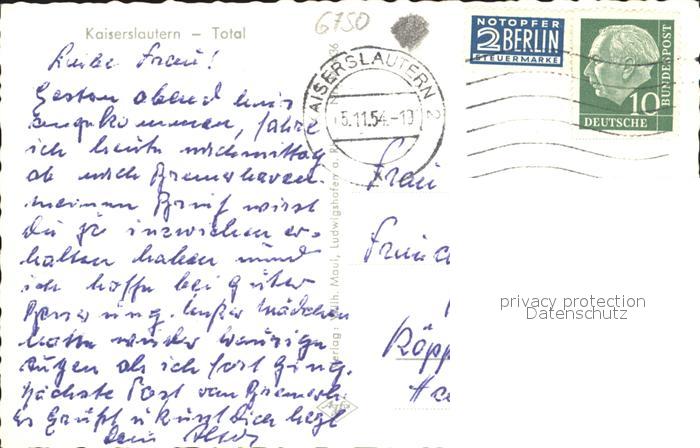 6750
Kaiserslautern — Total
NOTOPFER
2 BERLIN
STEUERMARKE
DEUTSCHE
BUNDESPOST
10
KAISERSLAUTERN 2
5.11.54.-19
Liebe Frau!
Gestern abend hier
angekommen, fahre
ich heute nachmittag
ab nach Bremerhaven.
meinen Brief wirst
Du ja inzwischen er-
halten haben und
ich hoffe bei guter
Besserung. Unser Mädchen
hatte wieder traurige
Augen als ich fort ging.
Nächste Post von Bremerh.
Es Grüßt u. Küsst Dich
Dein
Verlag: Wilh. Maul, Ludwigshafen a. Rh.
Frau
Röpp
privacy protection
Datenschutz